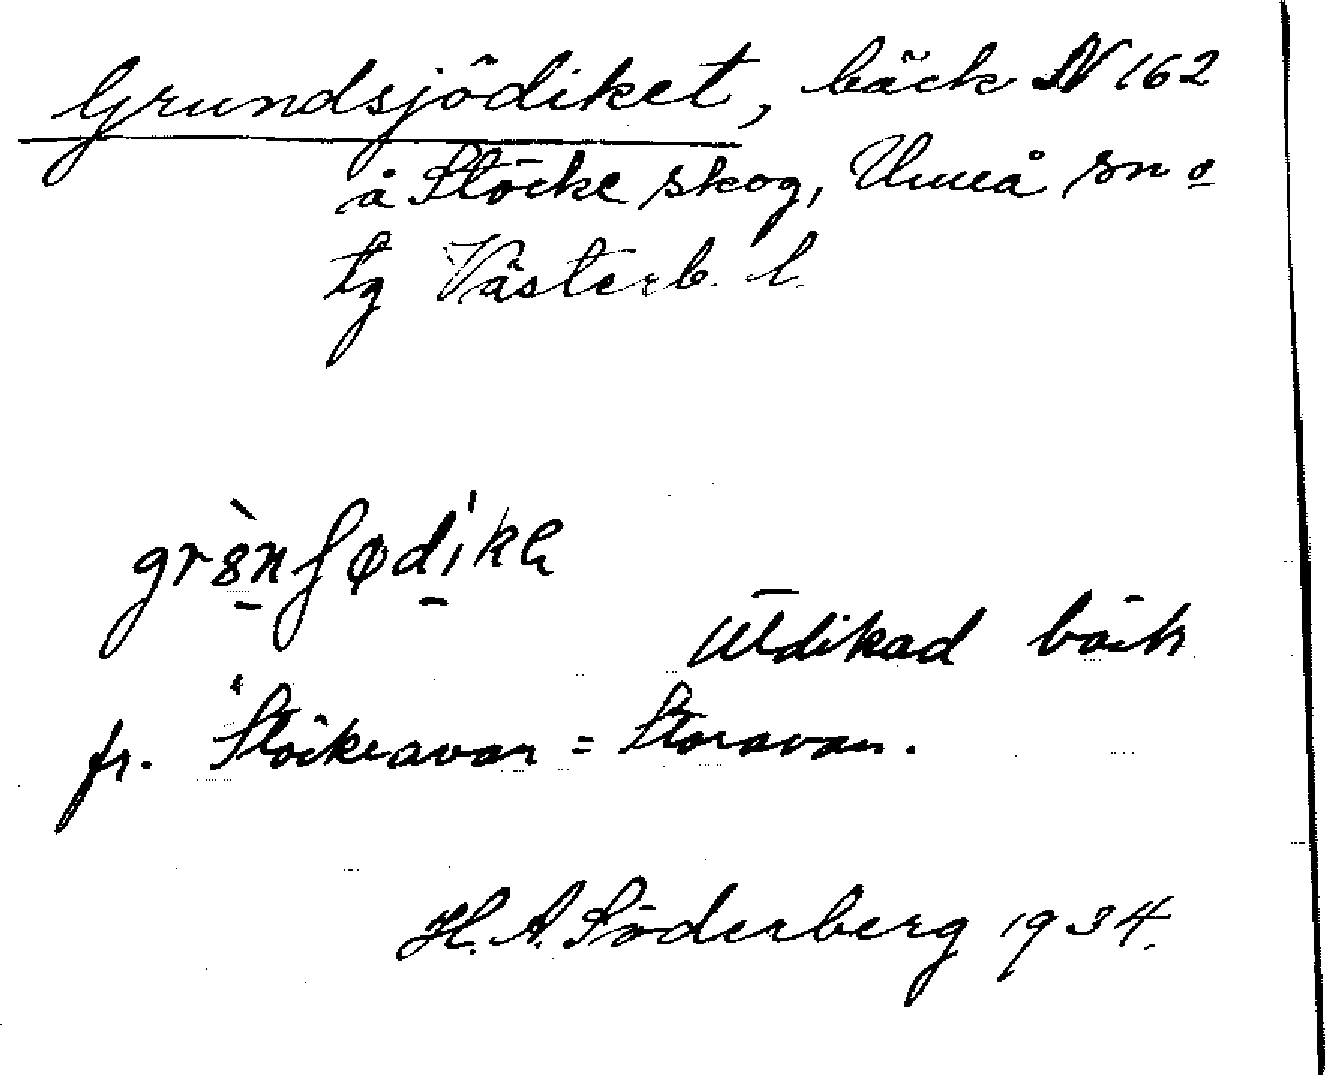 Grundsjödiket, bäck N 162
å Stöcke skog, Umeå sn o
tg Västerb. l.
Utdikad bäck
fr. Stöckeavan = Storavan.
H. A. Söderberg 1934.